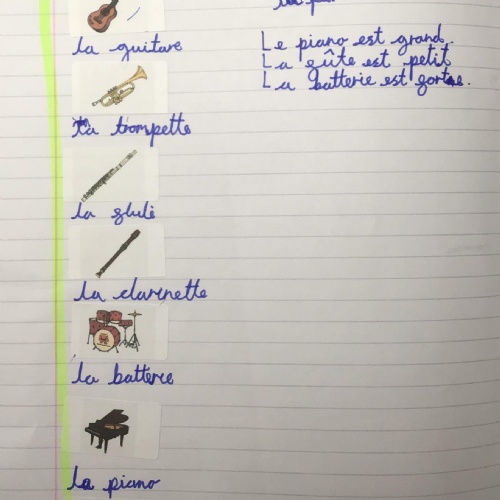 la guitare
la trompette
la glutè
la clarinette
la batterie
la piano
Le piano est grand.
La gûte est petit
La batterie est gorte.